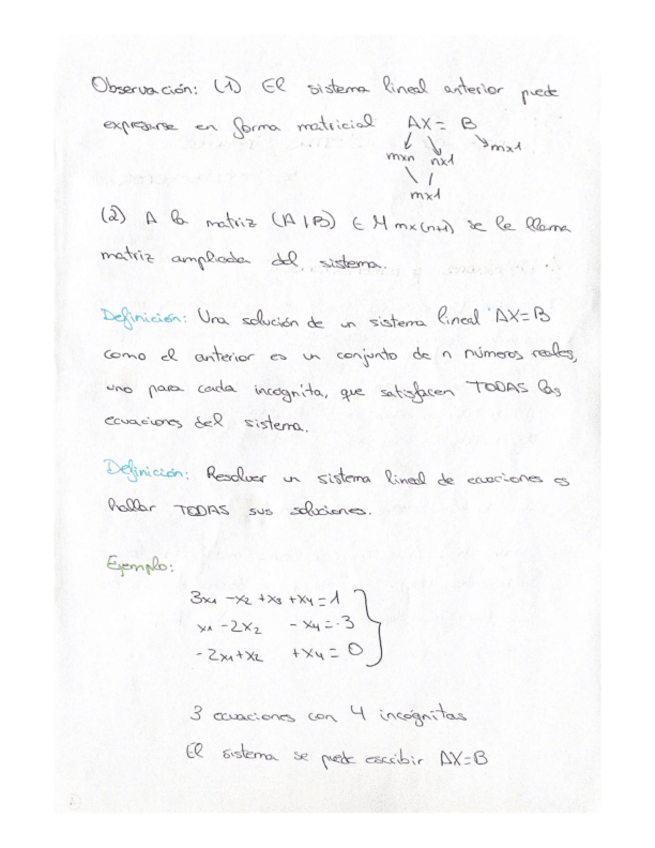 Observación: (1) El sistema lineal anterior puede
expresarse en forma matricial AX = B
mxn nx1 mx1
mx1
(2) A la matriz (A|B) ∈ M mx(n+1) se le llama
matriz ampliada del sistema.
Definición: Una solución de un sistema lineal AX=B
como el anterior es un conjunto de n números reales,
uno para cada incógnita, que satisfacen TODAS las
ecuaciones del sistema.
Definición: Resolver un sistema lineal de ecuaciones es
hallar TODAS sus soluciones.
Ejemplo:
3x₁ -x₂ +x₃ +x₄ = 1
x₁ -2x₂ - x₄ = -3
-2x₁+x₂ +x₄ = 0
3 ecuaciones con 4 incógnitas
El sistema se puede escribir AX=B